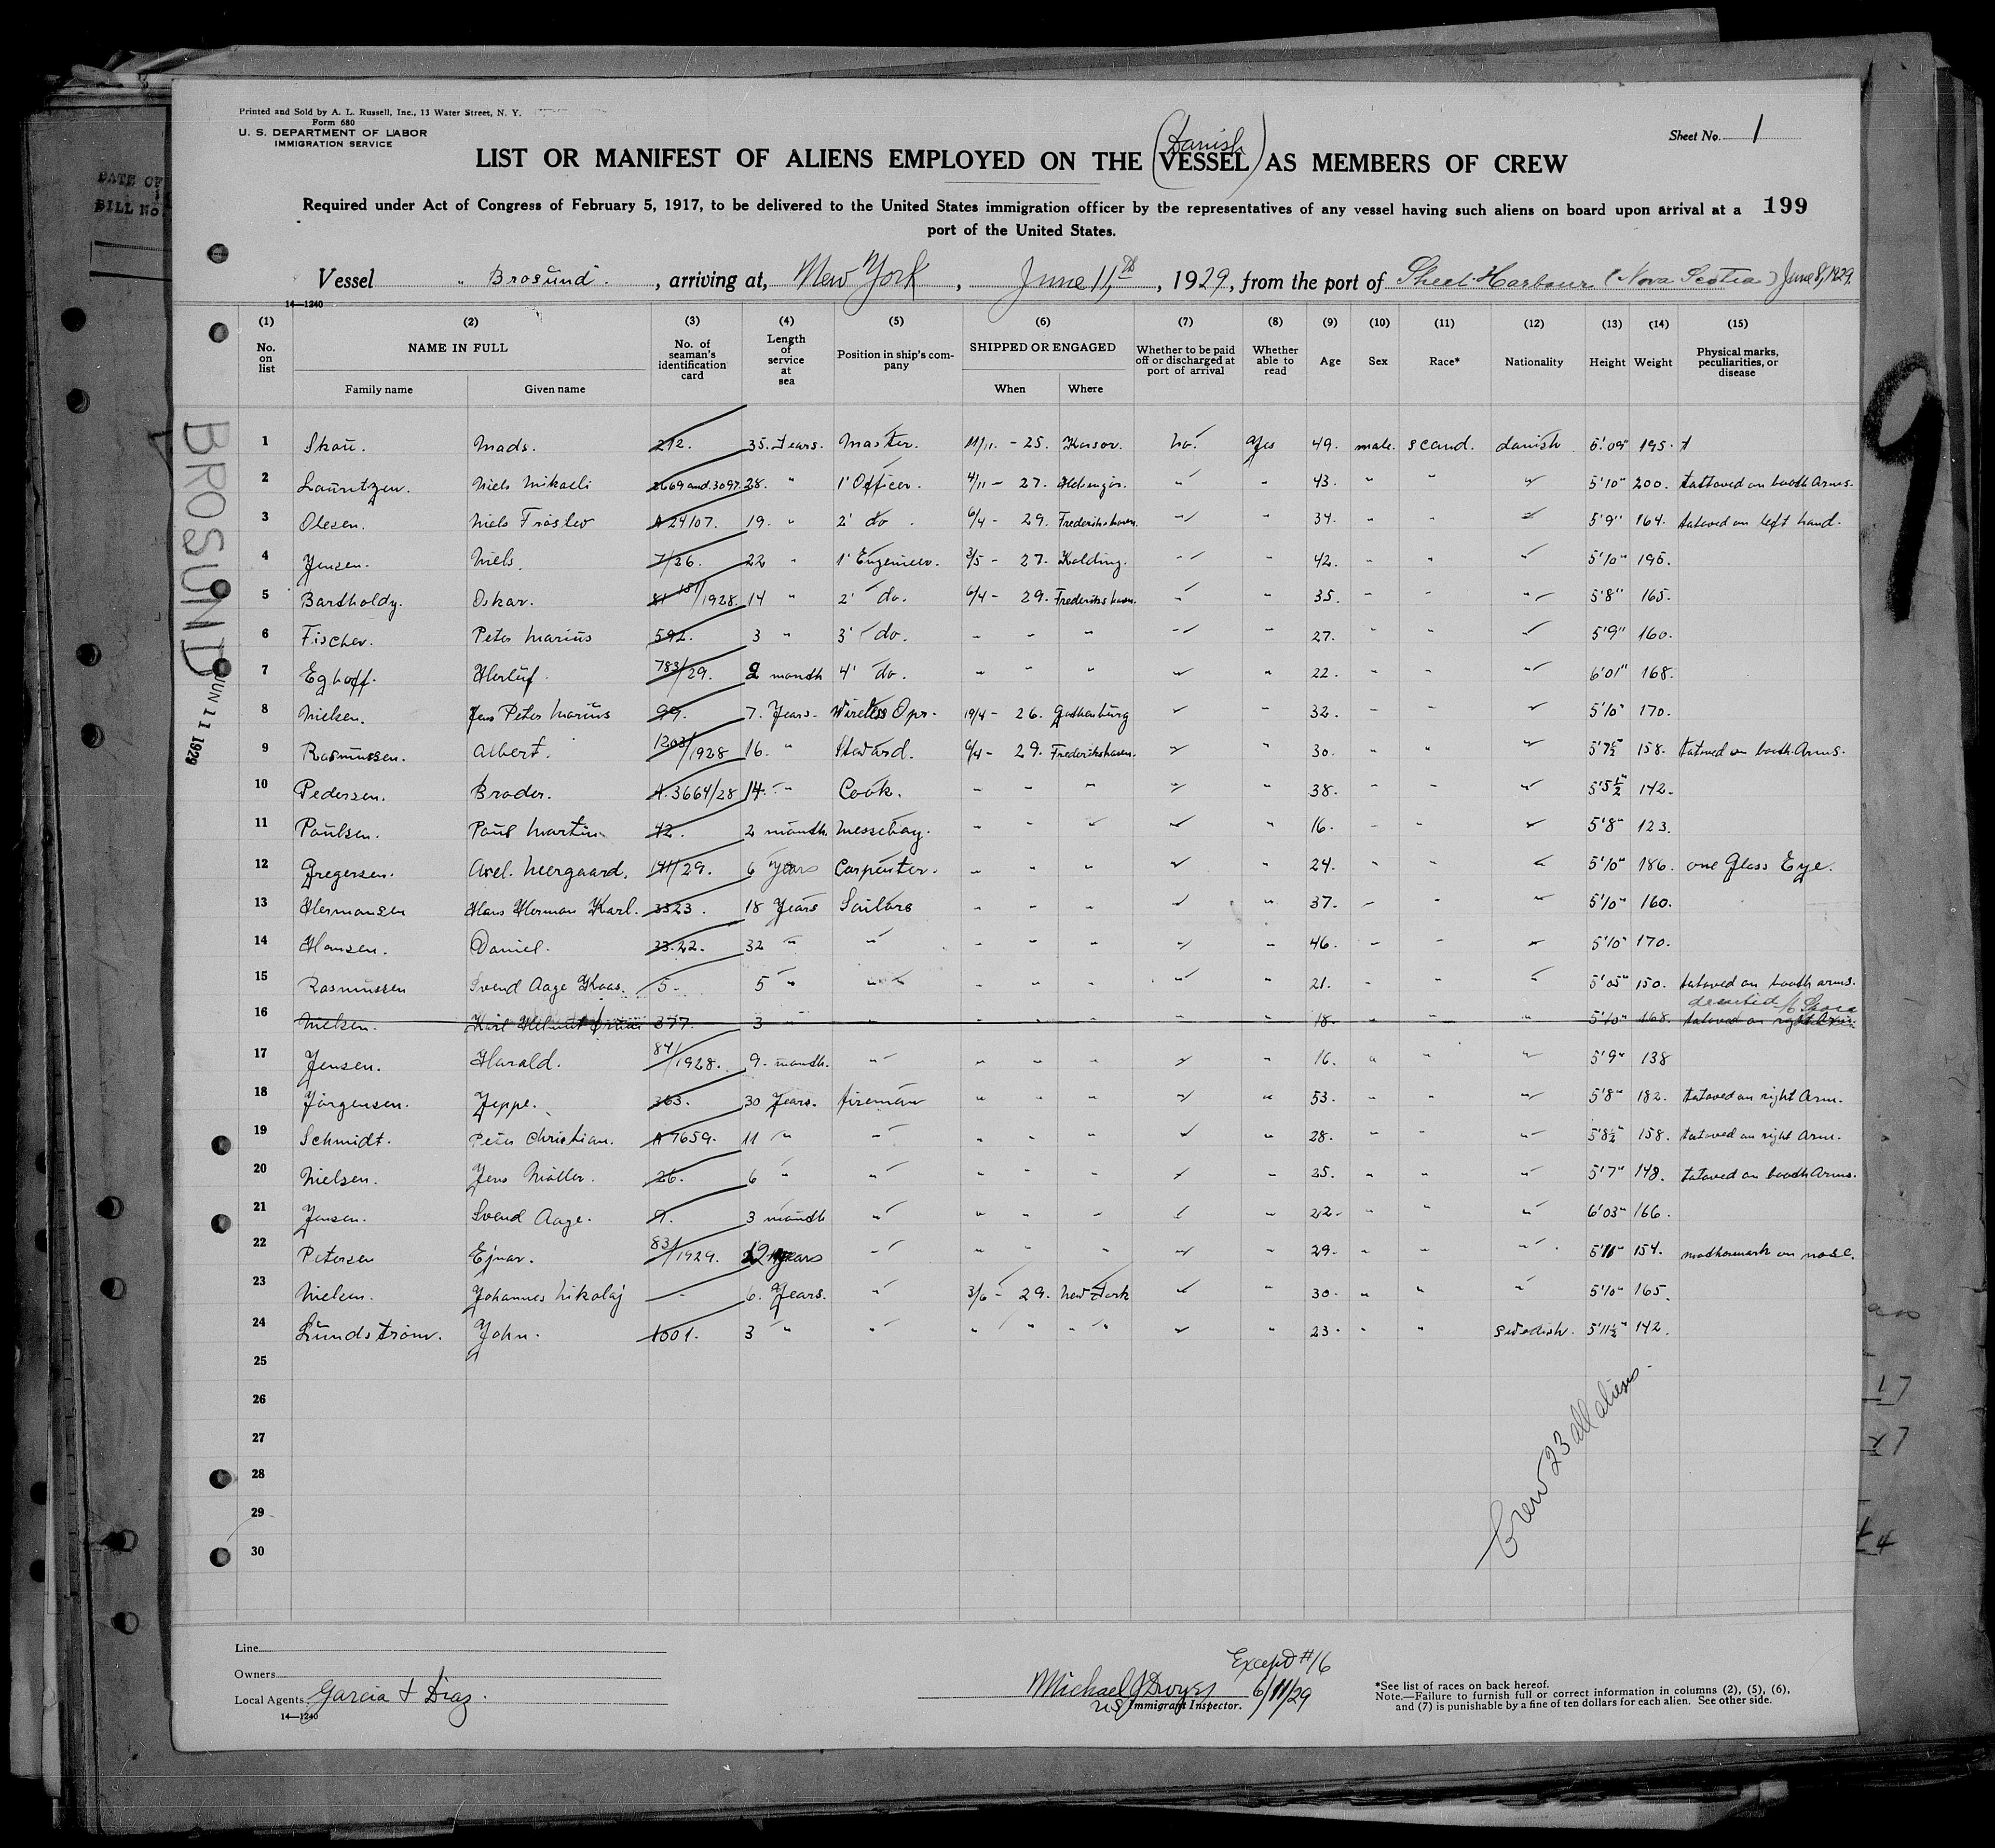 Printed and Sold by A. L. Russell, Inc., 13 Water Street, N. Y.
Form 680
U. S. DEPARTMENT OF LABOR
IMMIGRATION SERVICE
Sheet No. 1
(Danish)
LIST OR MANIFEST OF ALIENS EMPLOYED ON THE VESSEL AS MEMBERS OF CREW
Required under Act of Congress of February 5, 1917, to be delivered to the United States immigration officer by the representatives of any vessel having such aliens on board upon arrival at a 199
port of the United States.
Vessel " Brosund. , arriving at, New York , June 11,th , 1929, from the port of Sheet Harbour (Nova Scotia) June 8, 1929.
14—1240
(1) (2) (3) (4) (5) (6) (7) (8) (9) (10) (11) (12) (13) (14) (15)
No. on list NAME IN FULL Family name Given name No. of seaman's identification card Length of service at sea Position in ship's company SHIPPED OR ENGAGED When Where Whether to be paid off or discharged at port of arrival Whether able to read Age Sex Race* Nationality Height Weight Physical marks, peculiarities, or disease
1 Skau. Mads. 212. 35. Years. Master. 11/11. - 25. Korsor. no. Yes 49. male. scand. danish 5'09" 195.
2 Lauritzen. Niels Mikaeli 2669 and 3097. 28. " 1' Officer. 4/11 - 27. Helsingör. " " 43. " " " 5'10" 200. tattoved on booth Arms.
3 Olesen. Niels Fröslev A 24107. 19. " 2' do. 6/4 - 29. Frederikshavn. " " 34. " " " 5'9" 164. tatoved on left hand.
4 Jensen. Niels. 7/26. 22 " 1' Engenieer. 3/5 - 27. Kolding. " " 42. " " " 5'10" 195.
5 Bartholdy. Oskar. 81 181/1928. 14 " 2' do. 6/4 - 29. Frederikshavn. " " 35. " " " 5'8" 165.
6 Fischer. Peter Marius 592. 3 " 3' do. " " " " " 27. " " " 5'9" 160.
7 Eghoff. Herluf. 783/29. 2 month 4' do. " " " " " 22. " " " 6'01" 168.
8 Nielsen. Jens Peter Marius 99. 7. Years. Wireless Opr. 19/4 - 26. Gothenburg " " 32. " " " 5'10" 170.
9 Rasmussen. Albert. 1203/1928 16. " Steward. 6/4 - 29. Frederikshavn. " " 30. " " " 5'7½" 158. tatoved on booth Arms.
10 Pedersen. Broder. A. 3664/28 14. " Cook. " " " " " 38. " " " 5'5½" 142.
11 Paulsen. Paul Martin 42. 2 month. Messeboy. " " " " " 16. " " " 5'8" 123.
12 Gregersen. Axel. Neergaard. 141/29. 6 Years Carpenter. " " " " " 24. " " " 5'10" 186. one Glass Eye.
13 Hermansen Hans Herman Karl. 3323. 18 Years Sailors " " " " " 37. " " " 5'10" 160.
14 Hansen. Daniel. 33.22. 32 " " " " " " " 46. " " " 5'10" 170.
15 Rasmussen Svend Aage Kaas. 5. 5 " " " " " " " 21. " " " 5'05" 150. tatoved on booth arms.
deserted
16 Nielsen. Karl Helmuth 377. 3 " " " " " " " 18. " " " 5'10" 168. tatoved on right Arm.
17 Jensen. Harald. 84/1928. 9. month. " " " " " " 16. " " " 5'9" 138
18 Jörgensen. Jeppe. 363. 30 Years. fireman " " " " " 53. " " " 5'8" 182. tatoved on right Arm.
19 Schmidt. Peter Christian. A 7659. 11 " " " " " " " 28. " " " 5'8½" 158. tatoved on right Arm.
20 Nielsen. Jens Möller. 26. 6 " " " " " " " 25. " " " 5'7" 148. tatoved on booth Arms.
21 Jensen. Svend Aage. 9. 3 month " " " " " " 22. " " " 6'03" 166.
22 Petersen Ejnar. 83/1929. 12 years " " " " " " 29. " " " 5'11" 154. mothermark on nose.
23 Nielsen. Johannes Nikolaj - 6. Years. " 3/6 - 29. New York " " 30. " " " 5'10" 165.
24 Lundström. John. 1001. 3 " " " " " " " 23. " " Swedish. 5'11½" 142.
25
26
27
28
29
30
Crew 23 all aliens.
BROSUND
JUN 11 1929
9
DATE OF
BILL NO.
Line
Owners
Local Agents Garcia & Diaz.
14—1240
Except #16
Michael J Dwyer 6/11/29
US Immigrant Inspector.
*See list of races on back hereof.
Note.—Failure to furnish full or correct information in columns (2), (5), (6),
and (7) is punishable by a fine of ten dollars for each alien. See other side.